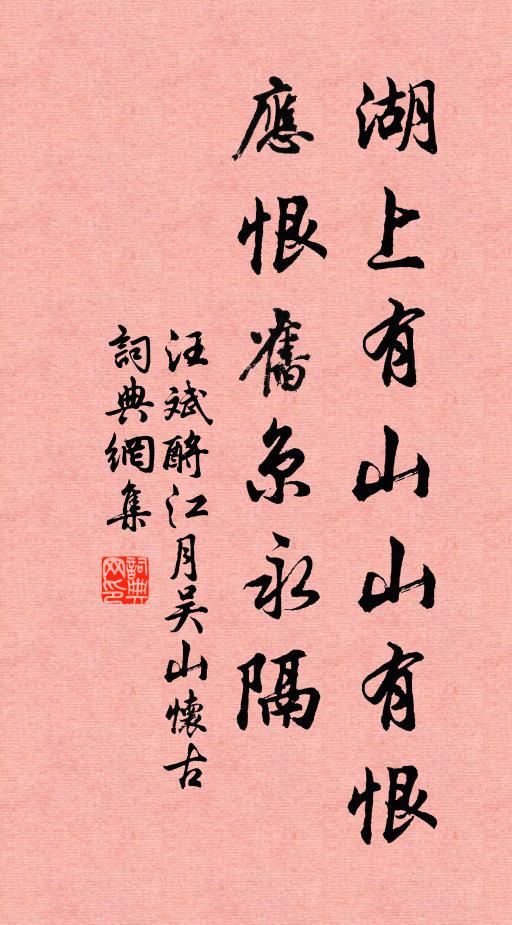 湖上有山山有恨
應恨舊京永隔
汪斌酹江月吴山懷古
詞典網集
詞典网印